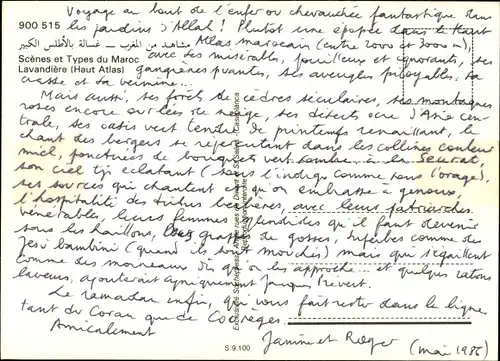 Voyage au bout de l'enfer ou chevauchée fantastique dans
900 515 les jardins d'Allah ! Plutôt une épopée dans le Haut
مشاهد من المغرب - غسالة بالأطلس الكبير Atlas marocain (entre 2000 et 3000 m),
Scènes et Types du Maroc avec ses misérables, pouilleux et ignorants, ses
Lavandière (Haut Atlas) gangrènes puantes, ses aveugles pitoyables, sa
crasse et sa vermine...
Mais aussi, ses forêts de cèdres séculaires, ses montagnes
roses encore ourlées de neige, ses déserts ocre d'Asie cen-
trale, ses oasis vert tendre de printemps renaissant, le
chant des bergers se répercutant dans les collines couleur
miel, ponctuées de bouquets vert sombre à la Seurat,
son ciel tjs éclatant (sous l'indigo comme sous l'orage),
ses sources qui chantent et qu'on embrasse à genoux,
l'hospitalité des tribus berbères, avec leurs patriarches
vénérables, leurs femmes splendides qu'il faut devenir
sous les haillons, les grappes de gosses, superbes comme des
Jesu bambini (quand ils sont mouchés) mais qui s'égaillent
comme des moineaux dès qu'on les approche... et quelques ratons
laveurs, ajouterait cyniquement Jacques Prévert.
Le ramadan enfin, qui vous fait rester dans la ligne
tant du Coran que de Courrèges
Amicalement Janine et Roger (mai 1986)
S 9.100